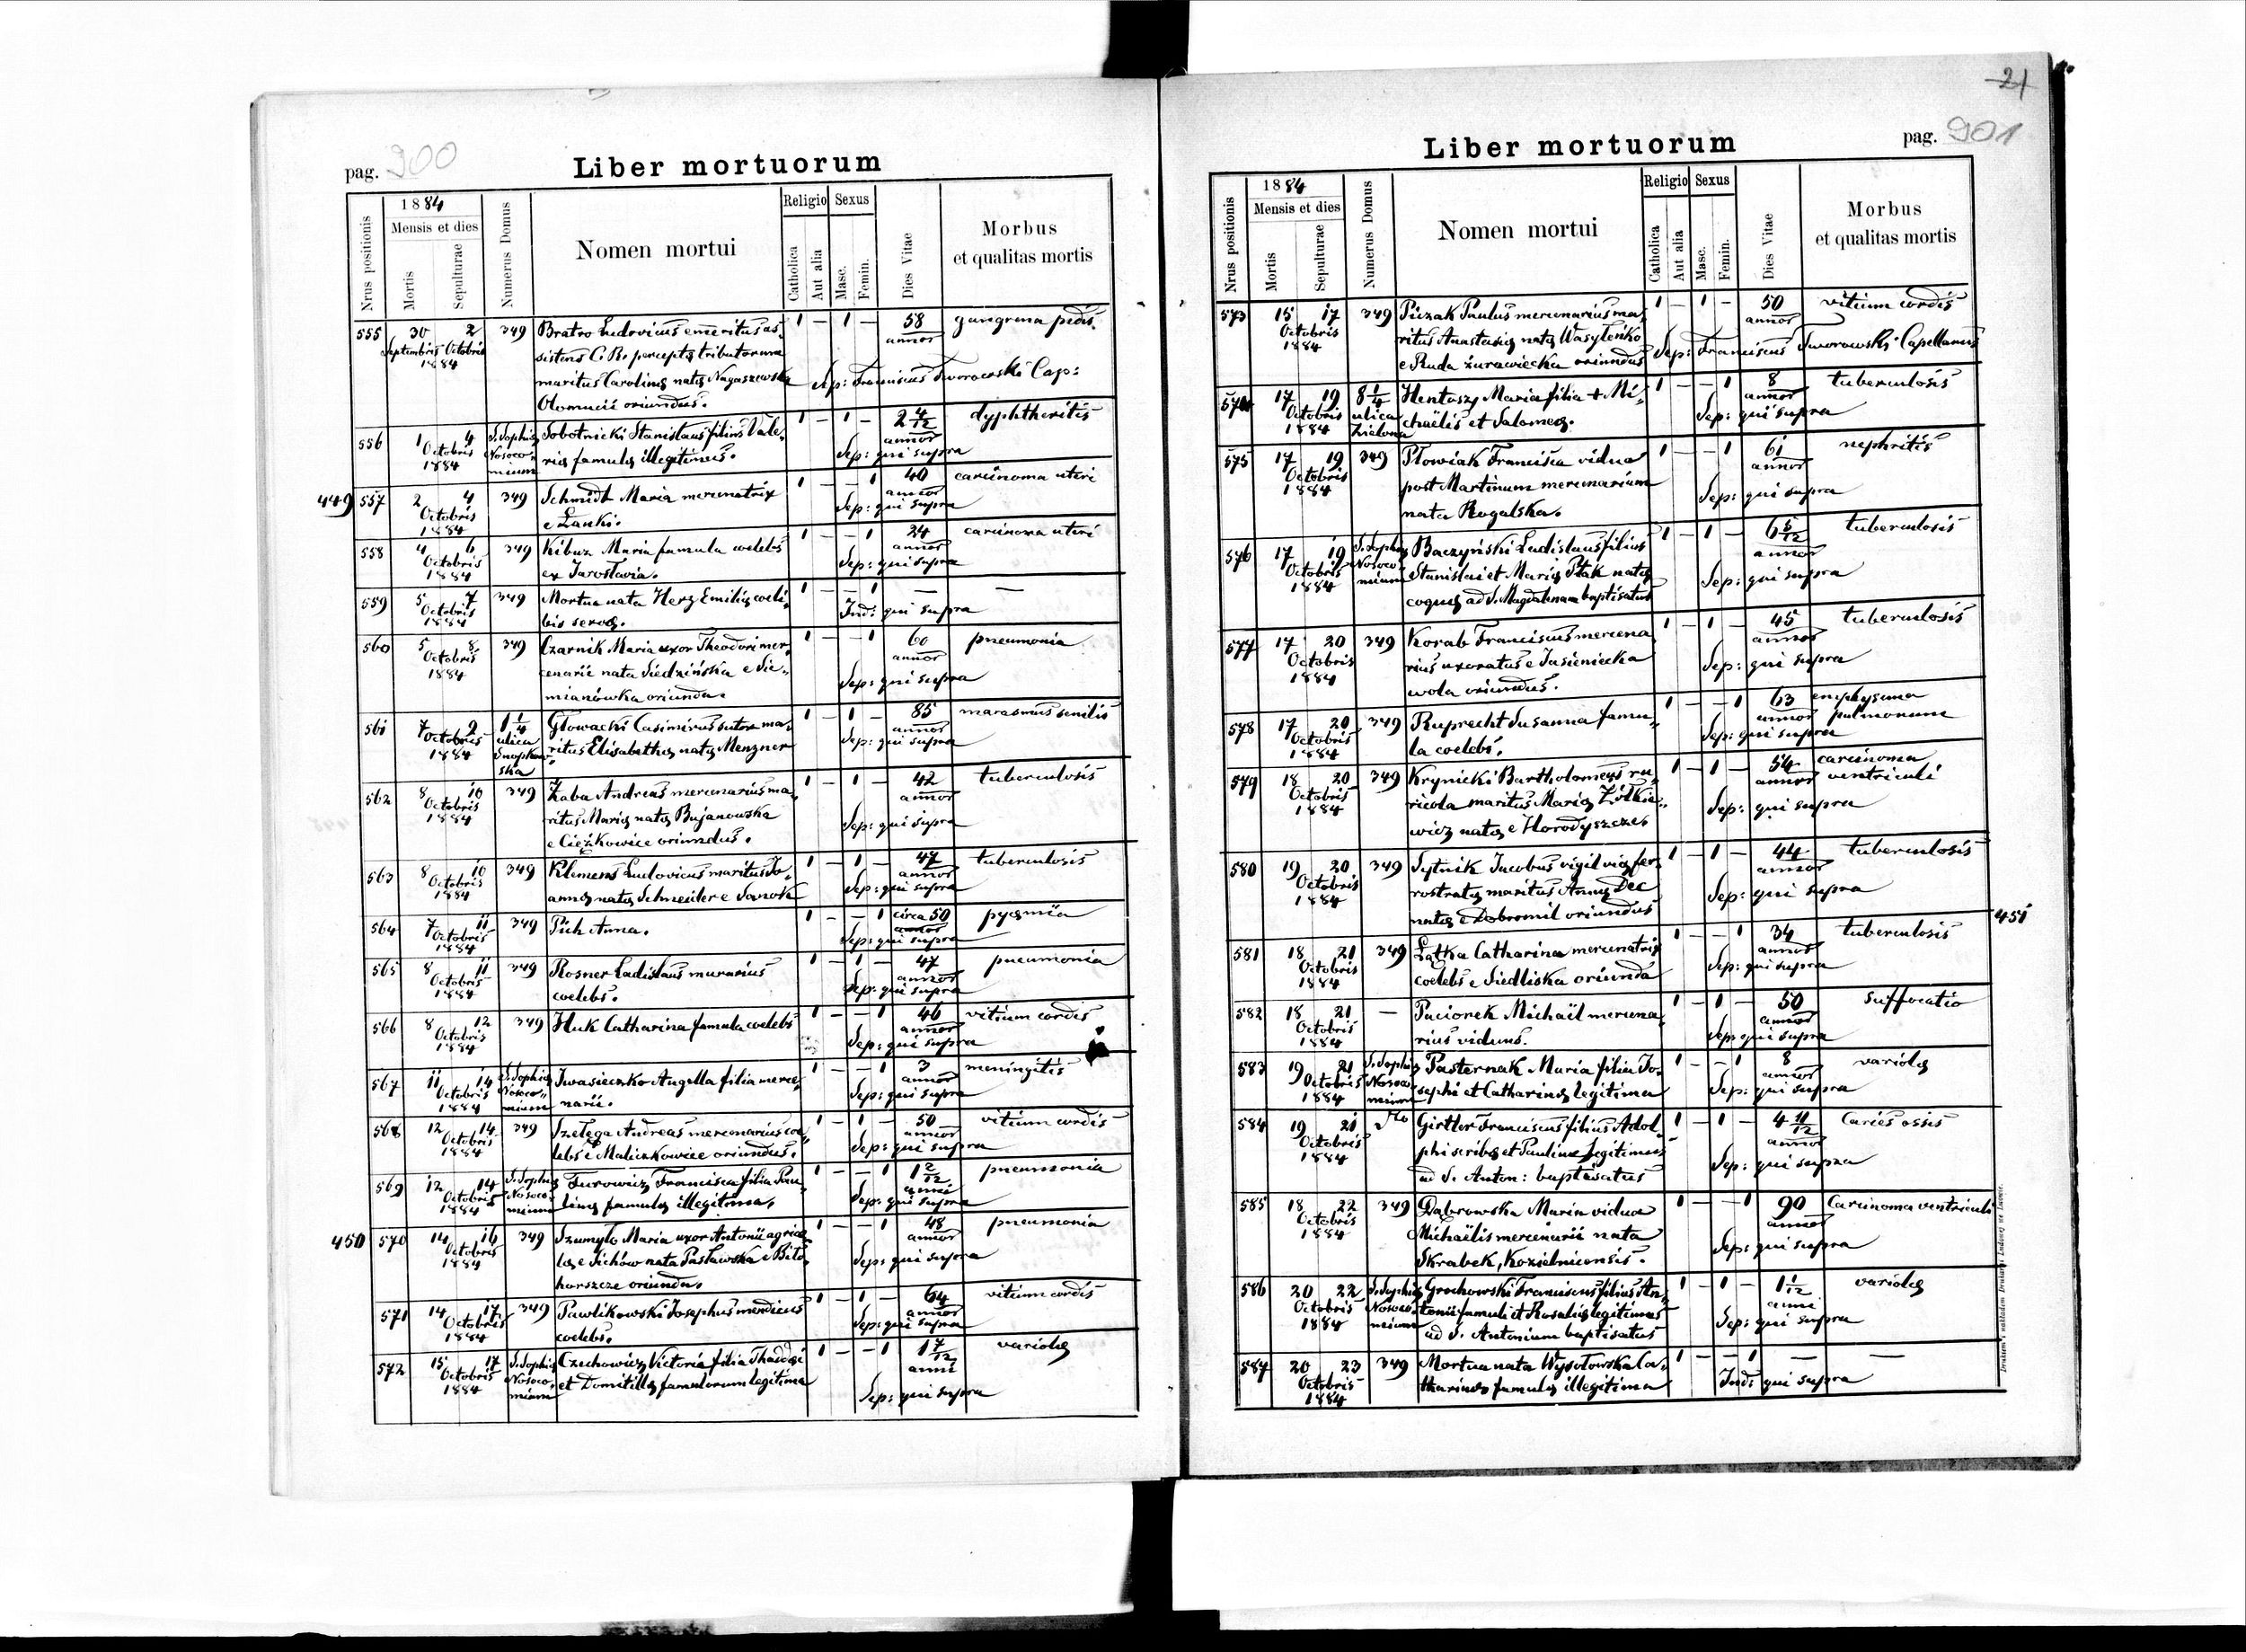 pag. 900
Liber mortuorum
Nrus positionis
1884
Mensis et dies
Mortis
Sepulturae
Numerus Domus
Nomen mortui
Religio
Catholica
Aut alia
Sexus
Masc.
Femin.
Dies Vitae
Morbus
et qualitas mortis
555 30 2 349 Bratro Ludovicus emeritus as- 1 — 1 — 58 gangrena pedis.
Septembris Octobris sistens C. R. percepta tributorum annor
1884 maritus Carolinę natę Nagaszewska Sep: Franciscus Tworowski Cap:
Olomucii oriundus.
556 1 4 S. Sophię Sobotnicki Stanislaus filius Vale- 1 — 1 — 2 4/12 dyphtheritis
Octobris Nosoco- rię famulę illegitimus. annor
1884 mium Sep: qui supra
449 557 2 4 349 Schmidt Maria mercenatrix 1 — — 1 40 carcinoma uteri
Octobris e Łanki. annor
1884 Sep: qui supra
558 4 6 349 Kibuz Maria famula coelebs 1 — — 1 24 carcinoma uteri
Octobris ex Jaroslavia. annor
1884 Sep: qui supra
559 5 7 349 Mortua nata Herz Emilię coeli- 1 — — 1 — —
Octobris bis servę. Ind: qui supra
1884
560 5 8 349 Czarnik Maria uxor Theodori mer- 1 — — 1 60 pneumonia
Octobris cenarii nata Siedzińska e Sie- annor
1884 mianówka oriunda. Sep: qui supra
561 7 9 1 1/4 Głowacki Casimirus sutor ma- 1 — 1 — 85 marasmus senilis
Octobris ulica ritus Elisabethę natę Menzner annor
1884 Snopkow- Sep: qui supra
ska
562 8 10 349 Żaba Andreas mercenarius ma- 1 — 1 — 42 tuberculosis
Octobris ritus Marię natę Bujanowska annor
1884 e Ciężkowice oriundus. Sep: qui supra
563 8 10 349 Klemens Ludovicus maritus Jo- 1 — 1 — 47 tuberculosis
Octobris annę natę Schmeiler e Sanok annor
1884 Sep: qui supra
564 7 11 349 Pich Anna. 1 — — 1 circa 50 pyęmia
Octobris annor
1884 Sep: qui supra
565 8 11 349 Rosner Ladislaus murarius 1 — 1 — 47 pneumonia
Octobris coelebs. annor
1884 Sep: qui supra
566 8 12 349 Huk Catharina famula coelebs 1 — — 1 46 vitium cordis
Octobris annor
1884 Sep: qui supra
567 11 14 S. Sophię Iwasieczko Angella filia merce- 1 — — 1 3 meningitis
Octobris Nosoco- narii. annor
1884 mium Sep: qui supra
568 12 14 349 Szeląga Andreas mercenarius coe- 1 — 1 — 50 vitium cordis
Octobris lebs e Maliczkowice oriundus. annor
1884 Sep: qui supra
569 12 14 S. Sophię Turowicz Francisca filia Pau- 1 — — 1 1 2/12 pneumonia
Octobris Nosoco- linę famulę illegitima. anni
1884 mium Sep: qui supra
450 570 14 16 349 Szumyło Maria uxor Antonii agrico- 1 — — 1 48 pneumonia
Octobris lę e Sichów nata Pasławska e Bito- annor
1884 horszcze oriunda. Sep: qui supra
571 14 17 349 Pawlikowski Josephus mendicus 1 — 1 — 64 vitium cordis
Octobris coelebs. annor
1884 Sep: qui supra
572 15 17 S. Sophię Czechowicz Victoria filia Thadęi 1 — — 1 1 7/12 variolę
Octobris Nosoco- et Domitillę famulorum legitima anni
1884 mium Sep: qui supra
21
Liber mortuorum
pag. 901
Nrus positionis
1884
Mensis et dies
Mortis
Sepulturae
Numerus Domus
Nomen mortui
Religio
Catholica
Aut alia
Sexus
Masc.
Femin.
Dies Vitae
Morbus
et qualitas mortis
573 15 17 349 Piczak Paulus mercenarius ma- 1 — 1 — 50 vitium cordis
Octobris ritus Anastasię natę Wasylenko annor
1884 e Ruda żurawiecka oriundus Sep: Franciscus Tworowski Capellanus
574 17 19 8 1/4 Hentosz Maria filia + Mi- 1 — — 1 8 tuberculosis
Octobris ulica chaëlis et Salomeę. annor
1884 Zielona Sep: qui supra
575 17 19 349 Płowiak Francisca vidua 1 — — 1 61 nephritis
Octobris post Martinum mercenarium annor
1884 nata Rogalska. Sep: qui supra
576 17 19 S. Sophię Baczyński Ladislaus filius 1 — 1 — 6 5/12 tuberculosis
Octobris Nosoco- Stanislai et Marię Ptak natę annor
1884 mium coquę ad S. Magdalenam baptisatus Sep: qui supra
577 17 20 349 Korab Franciscus mercena 1 — 1 — 45 tuberculosis
Octobris rius uxoratus e Jasieniecka annor
1884 wola oriundus. Sep: qui supra
578 17 20 349 Ruprecht Susanna famu- 1 — — 1 63 emphysema
Octobris la coelebs. annor pulmonum
1884 Sep: qui supra
579 18 20 349 Krynicki Bartholomeus ru- 1 — 1 — 54 carcinoma
Octobris ricola maritus Marię Żółkie- annor ventriculi
1884 wicz natę e Horodyszcze. Sep: qui supra
580 19 20 349 Sytnik Jacobus vigil vię fer- 1 — 1 — 44 tuberculosis
Octobris rostratę maritus Annę Dec annor
1884 natę e Dobromil oriundus Sep: qui supra
581 18 21 349 Łątka Catharina mercenatrix 1 — — 1 34 tuberculosis 451
Octobris coelebs e Siedliska oriunda annor
1884 Sep: qui supra
582 18 21 — Paciorek Michaël mercena- 1 — 1 — 50 suffocatio
Octobris rius viduus. annor
1884 Sep: qui supra
583 19 21 S. Sophię Pasternak Maria filia Jo- 1 — — 1 8 variolę
Octobris Nosoco- sephi et Catharinę legitima annor
1884 mium Sep: qui supra
584 19 21 Girtler Franciscus filius Adol- 1 — 1 — 4 11/12 Caries ossis
Octobris phi scribę et Paulinę legitimus annor
1884 ad S. Anton: baptisatus Sep: qui supra
585 18 22 349 Dąbrowska Maria vidua 1 — — 1 90 Carcinoma ventriculi
Octobris Michaëlis mercenarii nata annor
1884 Skrabek, Kozielnicensis. Sep: qui supra
586 20 22 S. Sophię Grochowski Franciscus filius An- 1 — 1 — 1 1/12 variolę
Octobris Nosoco- tonii famuli et Rosalię legitimus anni
1884 mium ad S. Antonium baptisatus Sep: qui supra
587 20 23 349 Mortua nata Wysołowska Ca- 1 — — 1 — —
Octobris tharinę famulę illegitima Ind: qui supra
1884